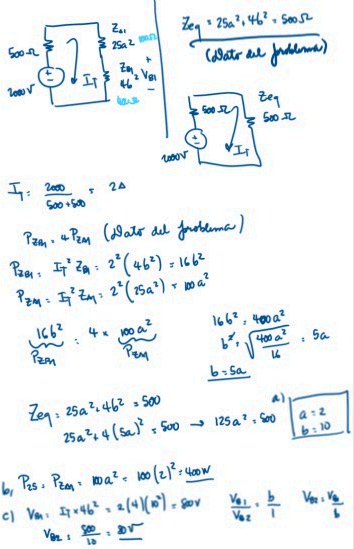 Z_A1
25a² 100Ω
500Ω
I_T
Z_B1 +
4b² V_B1
400Ω −
2000V
Zeq = 25a² + 4b² = 500Ω
(Dato del problema)
Zeq
500Ω
500Ω
I_T
2000V
I_T = 2000 / (500+500) = 2A
P_ZB1 = 4 P_ZA1 (Dato del problema)
P_ZB1 = I_T² Z_B1 = 2² (4b²) = 16b²
P_ZA1 = I_T² Z_A1 = 2² (25a²) = 100a²
16b² = 4 × 100a²
P_ZB1 P_ZA1
16b² = 400a²
b = √(400a² / 16) = 5a
b = 5a
Zeq = 25a² + 4b² = 500
25a² + 4(5a)² = 500 → 125a² = 500
a)
a = 2
b = 10
b) P25 = P_ZA1 = 100a² = 100(2)² = 400W
c) V_B1 = I_T × 4b² = 2(4)(10²) = 800V
V_B1 / V_B2 = b / 1
V_B2 = V_B1 / b
V_B2 = 800 / 10 = 80V